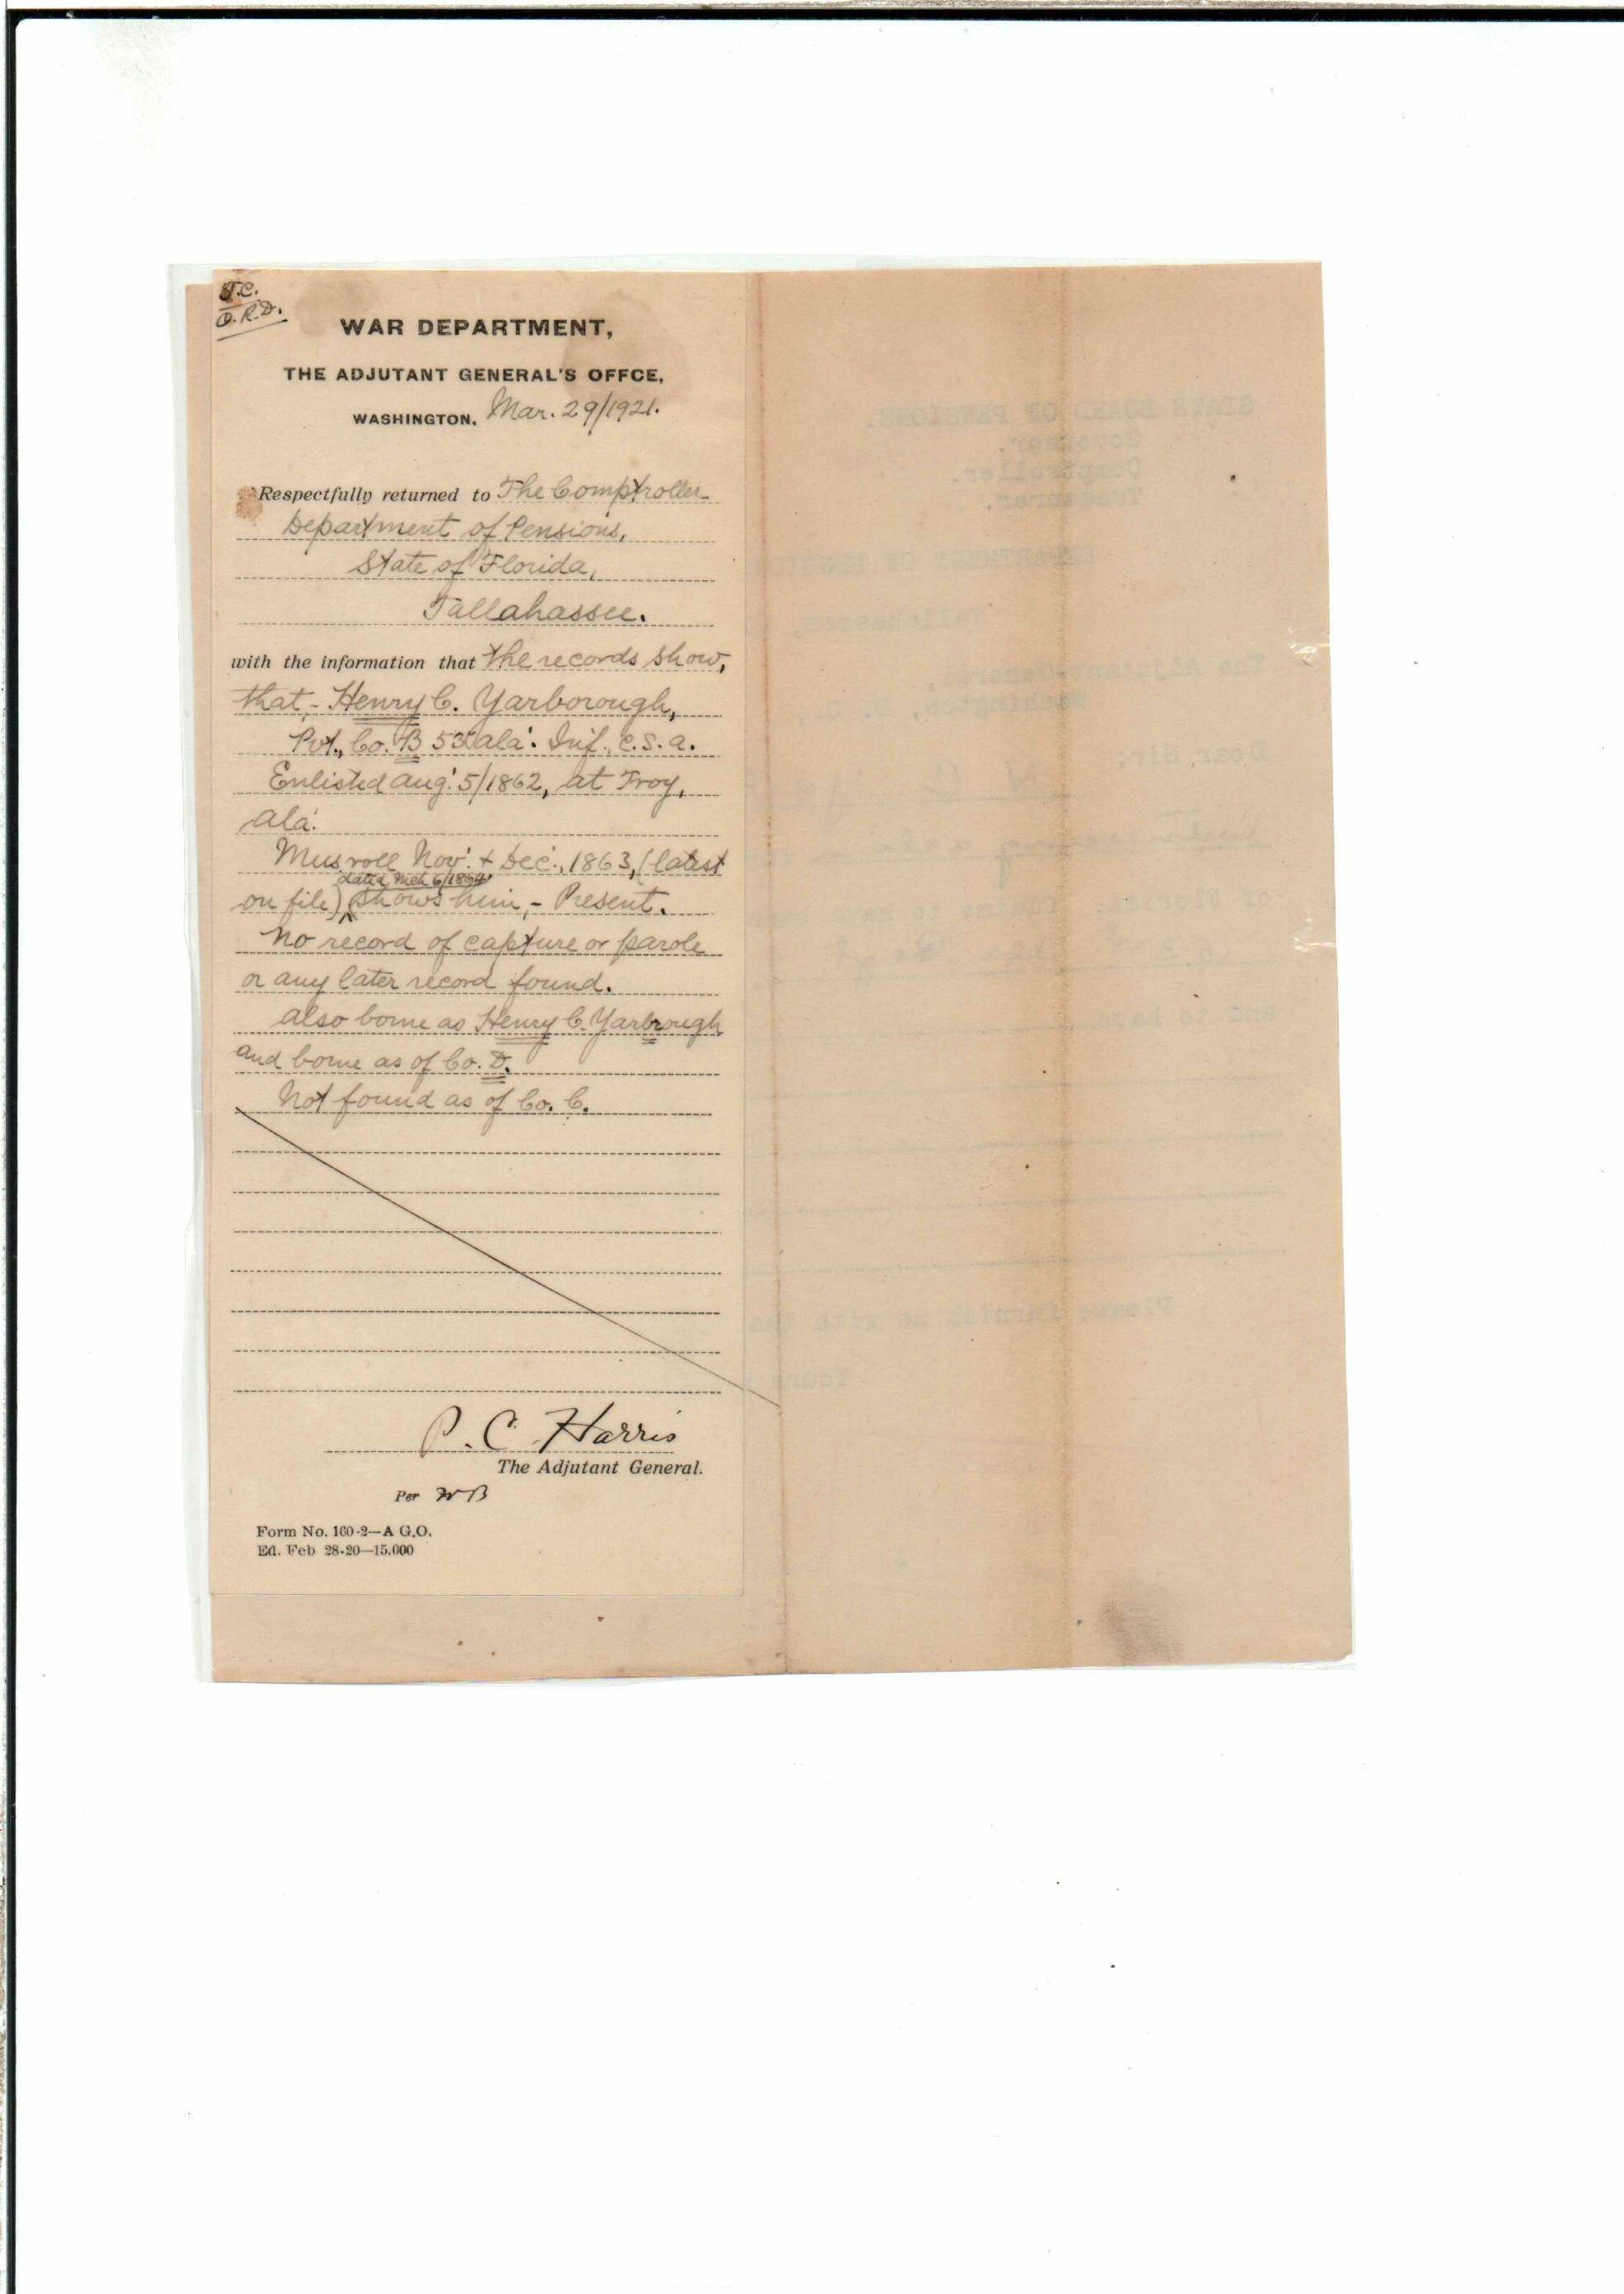 J.C.
O.R.D.
WAR DEPARTMENT,
THE ADJUTANT GENERAL'S OFFCE,
WASHINGTON, Mar. 29/1921.
Respectfully returned to The Comptroller
Department of Pensions,
State of Florida,
Tallahassee.
with the information that the records show,
that,- Henry C. Yarborough,
Pvt., Co. B 53" Ala. Inf., C.S.A.
Enlisted Aug. 5/1862, at Troy,
Ala.
Mus roll Nov. & Dec., 1863, (latest
dated Mch 6/1864
on file) shows him,- Present.
No record of capture or parole
or any later record found.
Also borne as Henry C. Yarbrough
and borne as of Co. D.
Not found as of Co. C.
P. C Harris
The Adjutant General.
Per WB
Form No. 160-2—A G.O.
Ed. Feb 28-20—15,000
STATE BOARD OF PENSIONS.
Governor.
Comptroller.
Treasurer.
DEPARTMENT OF
Tallahassee,
The Adjutant General,
Washington, D. C.
Dear Sir:
of Florida. Claims to have
and to have
Please furnish me with the
Yours